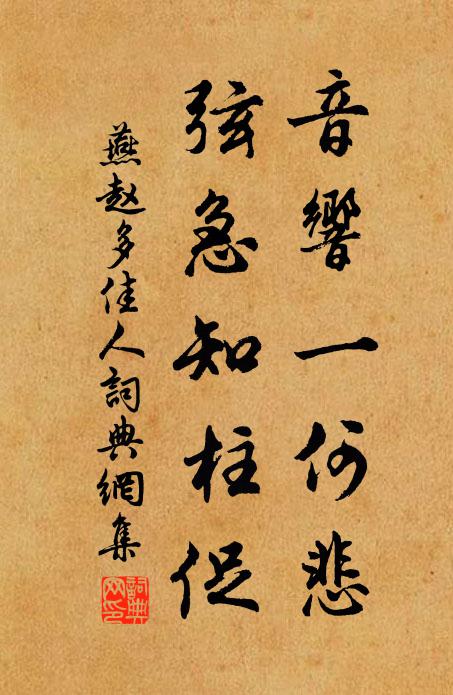 音響一何悲
弦急知柱促
燕赵多佳人詞典網集
詞典網印